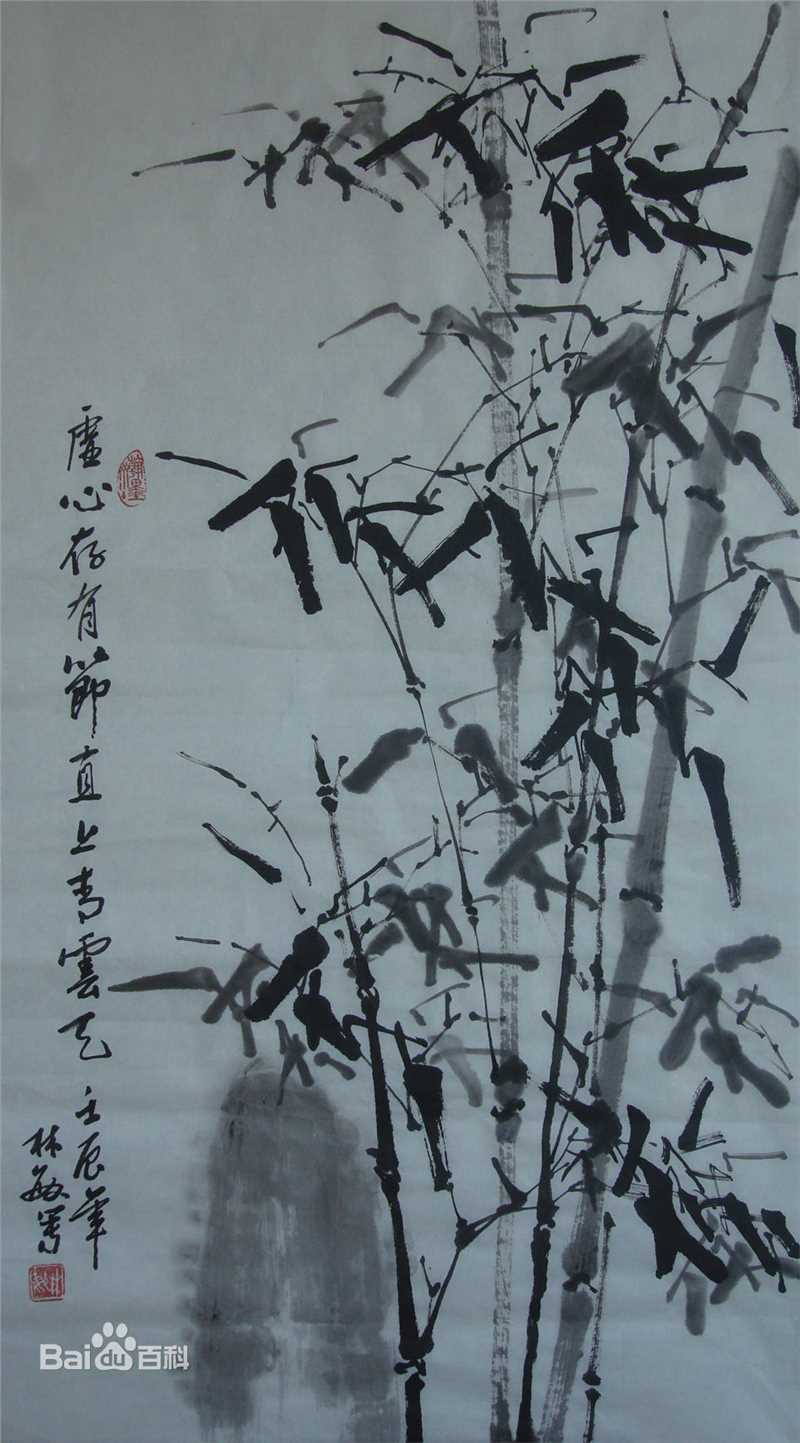 虚心存有節直上青雲天 壬辰年
林敏写
Baidu百科